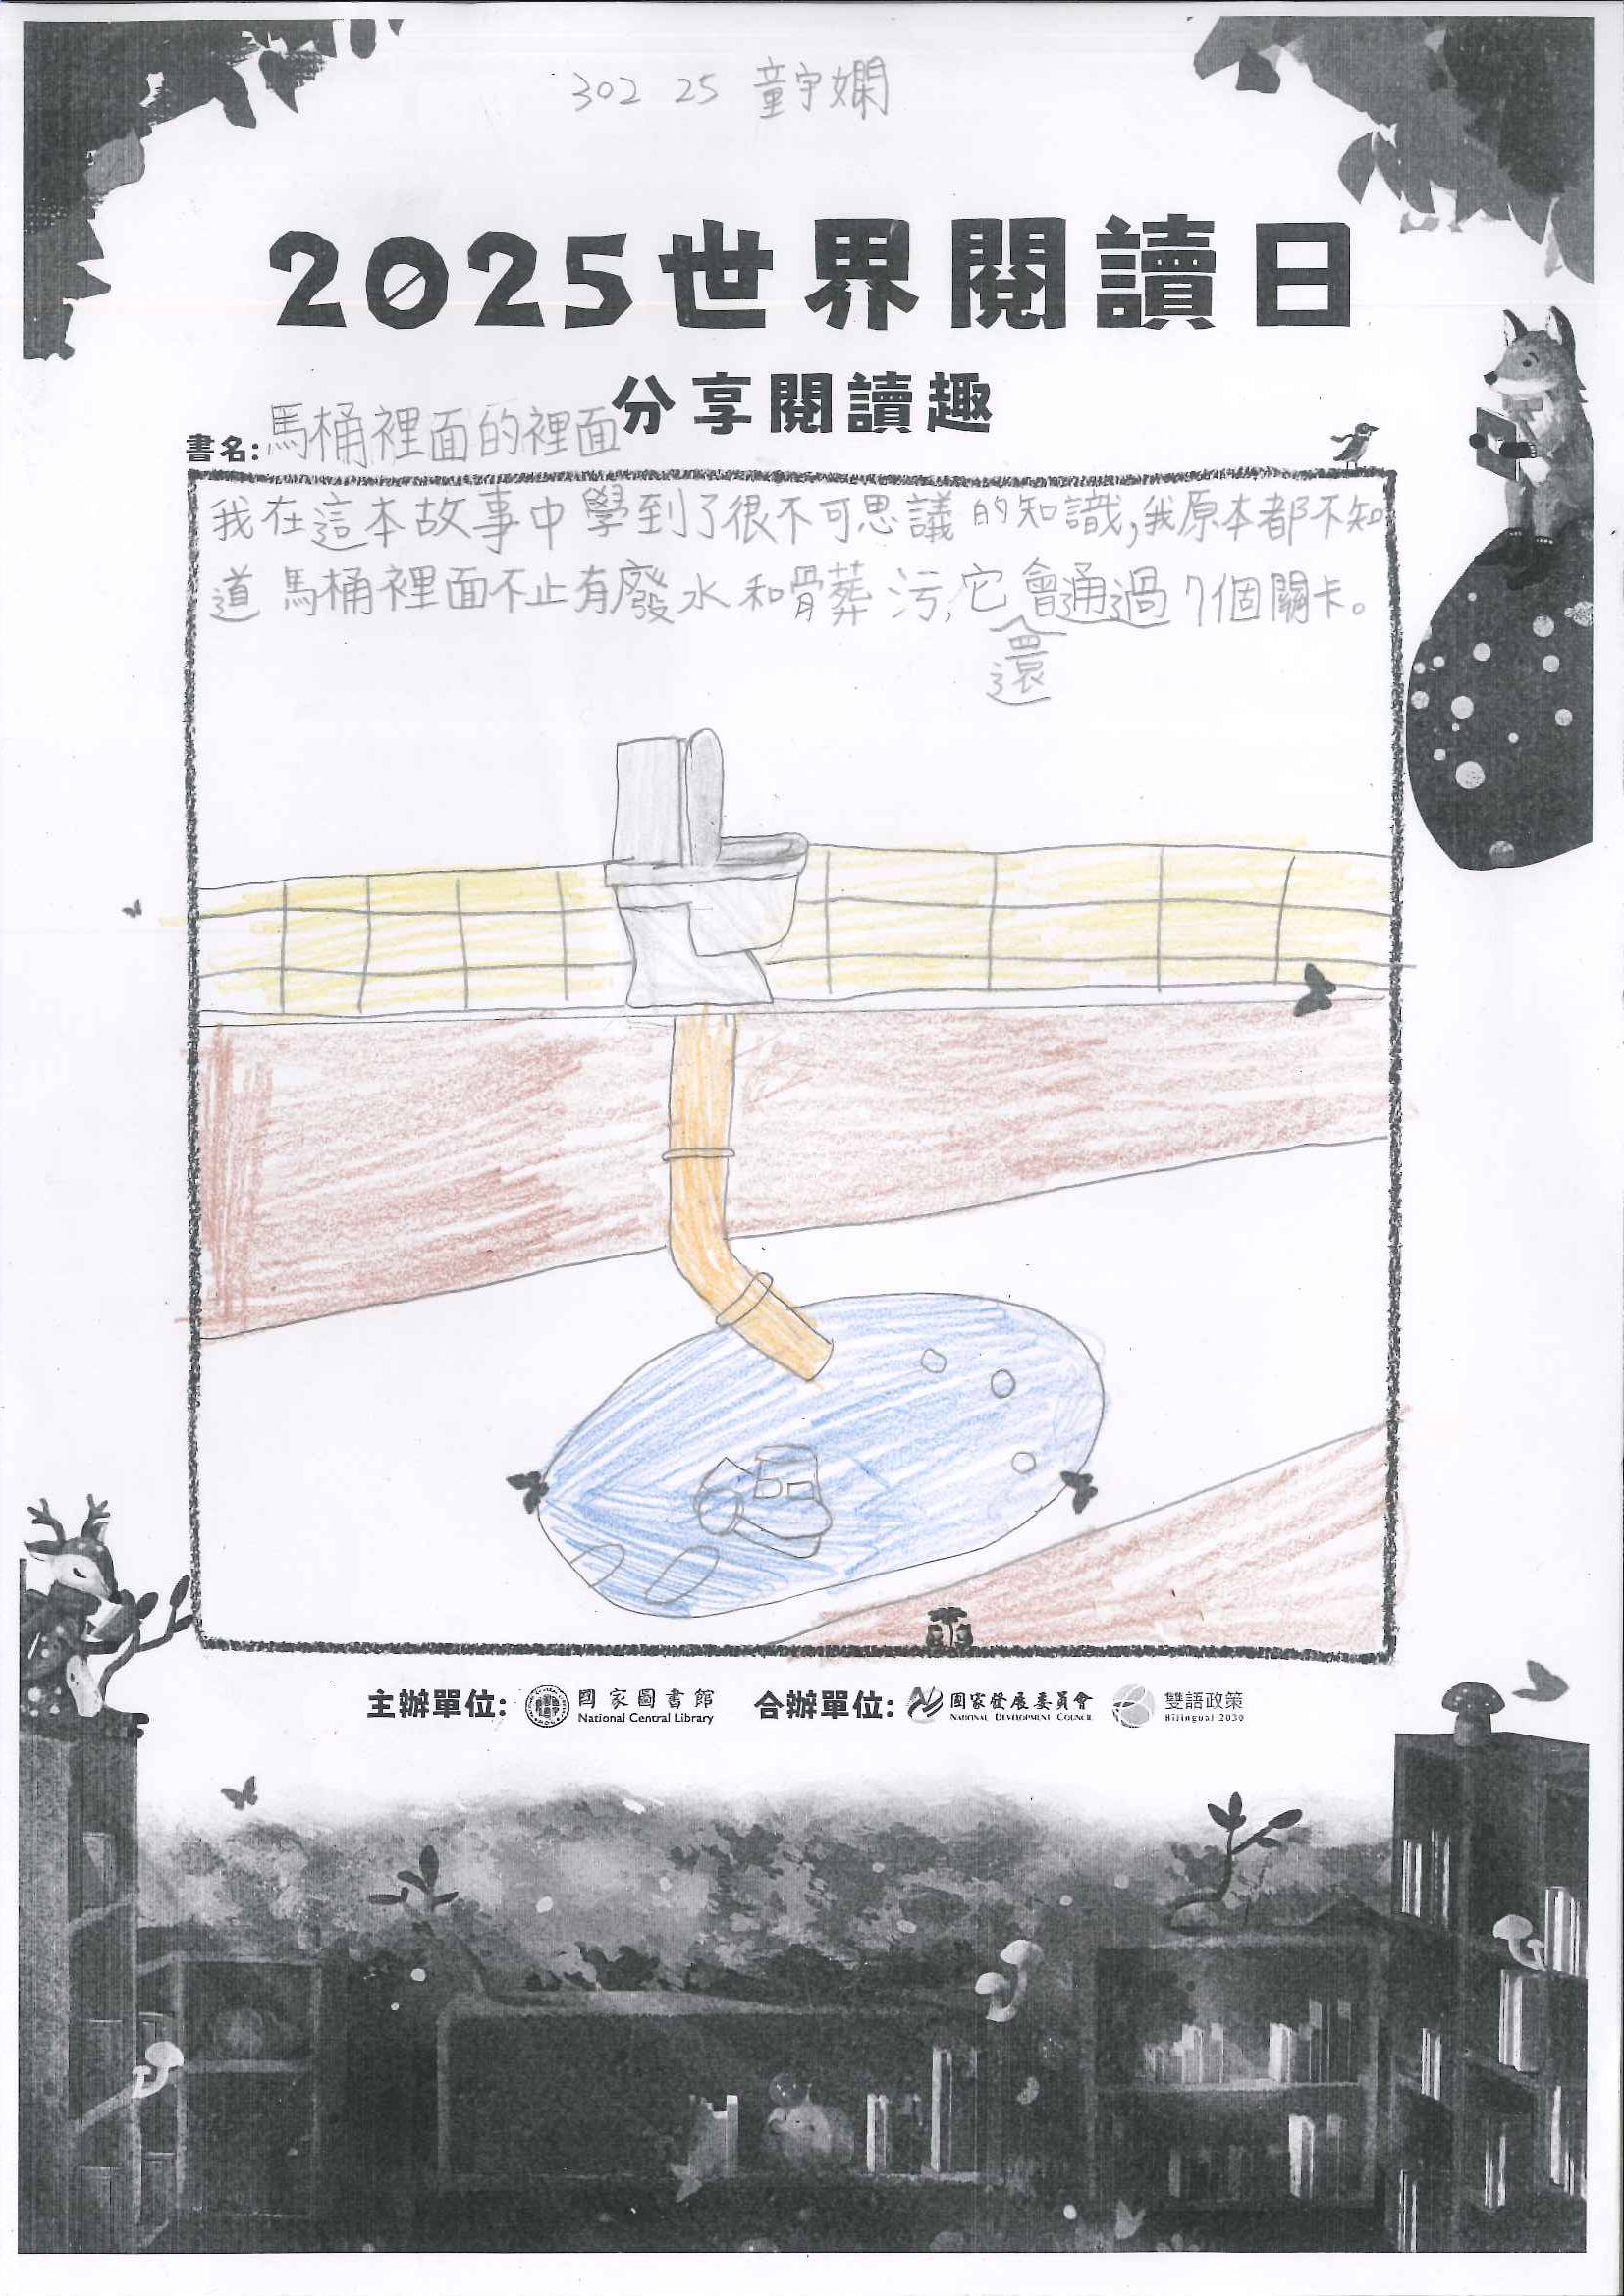 302 25 童宇嫻
2025世界閱讀日
分享閱讀趣
書名:馬桶裡面的裡面
我在這本故事中學到了很不可思議的知識,我原本都不知
道馬桶裡面不止有廢水和骨葬污,它還會通過7個關卡。
主辦單位: 國家圖書館 National Central Library 合辦單位: 國家發展委員會 National Development Council 雙語政策 Bilingual 2030